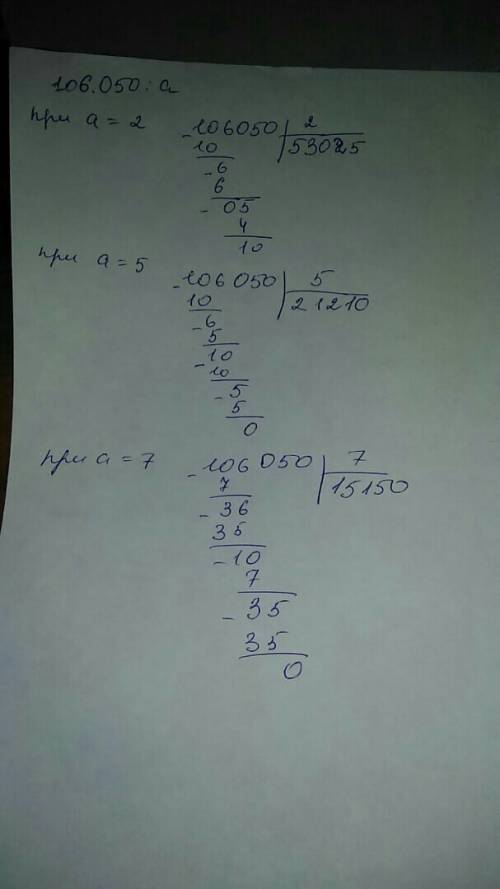 106.050 : a
при a = 2
- 106050 | 2
10 53025
- 6
6
- 05
4
10
при a = 5
- 106050 | 5
10 21210
- 6
5
- 10
10
- 5
5
0
при a = 7
- 106050 | 7
7 15150
- 36
35
- 10
7
- 35
35
0